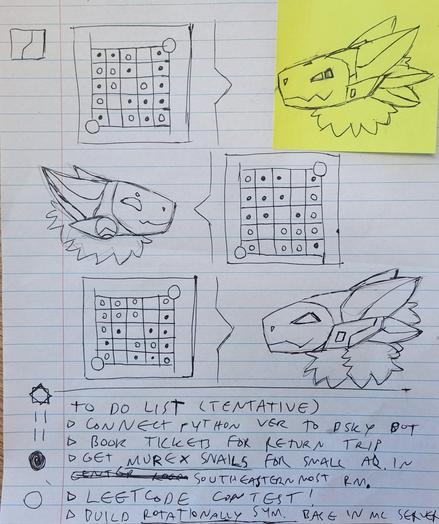 TO DO LIST (TENTATIVE)
▷ CONNECT PYTHON VER TO DSKY BOT
▷ BOOK TICKETS FOR RETURN TRIP
▷ GET MUREX SNAILS FOR SMALL AQ. IN
SOUTHEASTERNMOST RM.
▷ LEETCODE CONTEST!
▷ BUILD ROTATIONALLY SYM. BASE IN MC SERVER